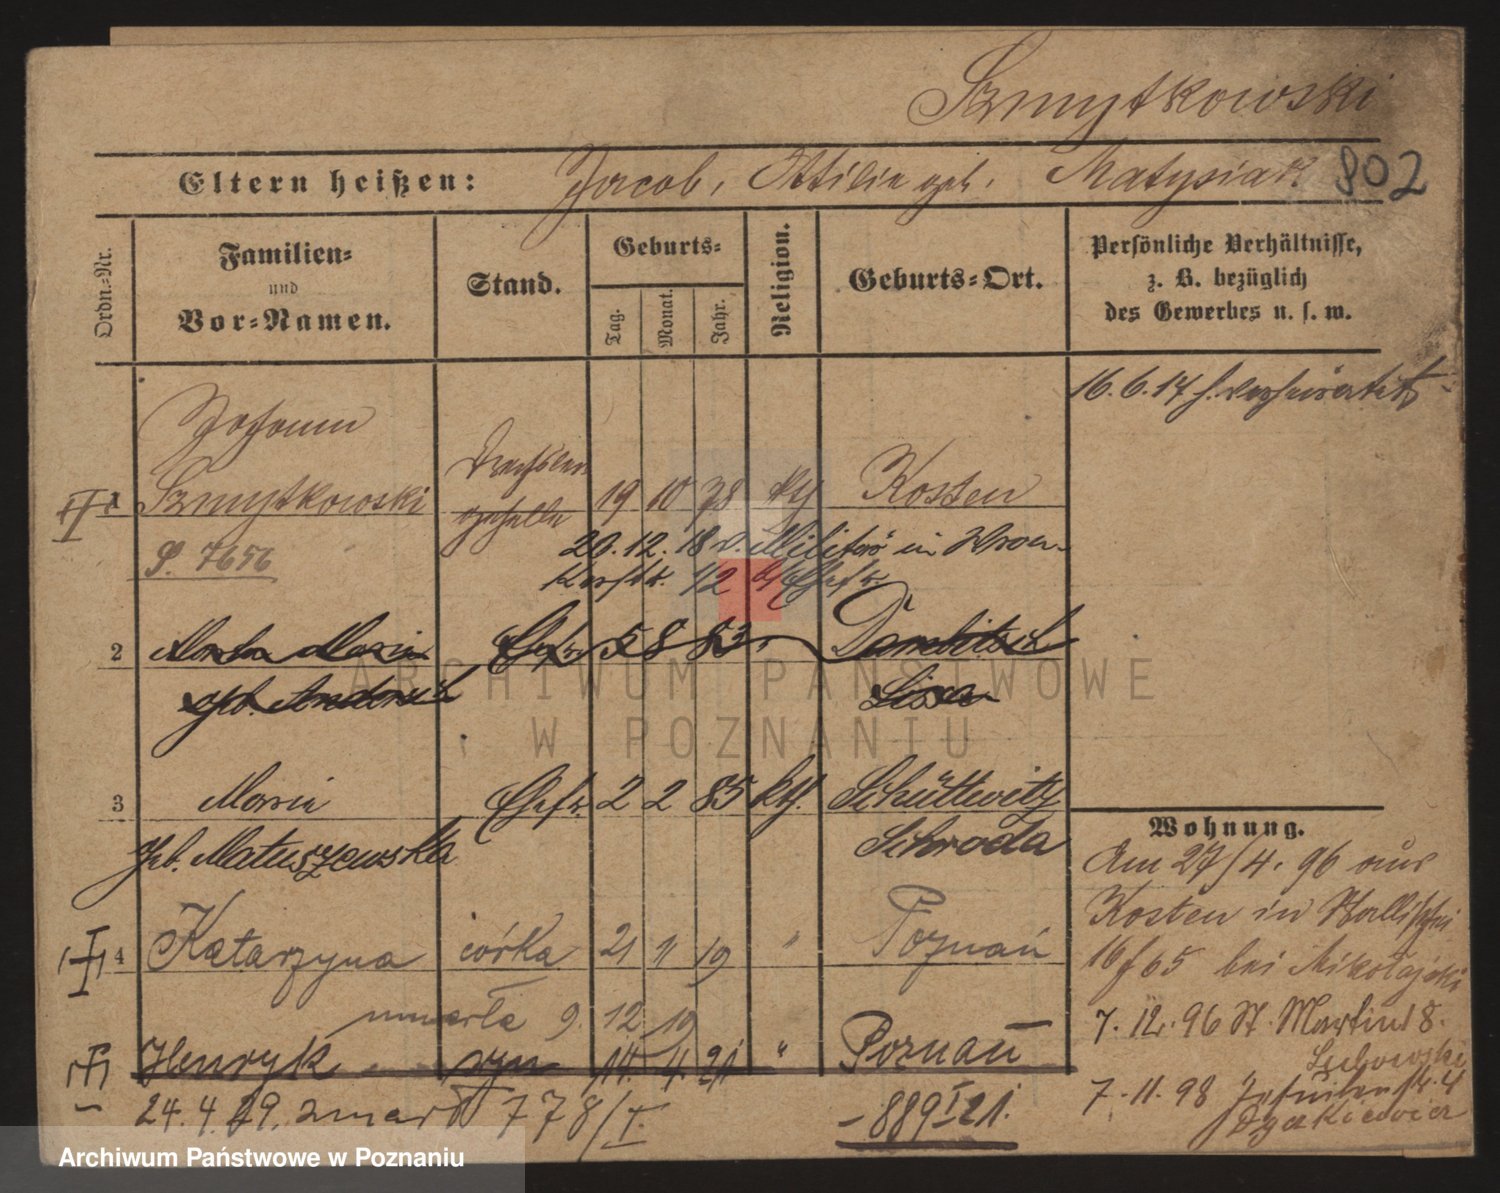 Szmytkowski
Eltern heißen: Jacob, Ottilie geb. Matysiak 802
Ordn.-Nr.
Familien- und Vor-Namen.
Stand.
Geburts-
Tag. Monat. Jahr.
Religion.
Geburts-Ort.
Persönliche Verhältnisse,
z. B. bezüglich
des Gewerbes u. s. w.
16.6.17 verheiratet
Johann
1 Szmytkowski 19 10 78 kth Kosten
geselle
P. 7656
20.12.18 v. Militär in
2 Maria Ehefr. 5 8 83 Dambitsch
geb. Lissa
3 Maria Ehefr. 2 2 85 kth. Schüttewitz
geb. Matuszewska Schroda
4 Katarzyna córka 21 11 19 " Poznań
umarła 9. 12 19
Henryk syn 14. 4. 21 " Poznań
24.4.29. zmarł 778/I. – 889 I 21.
Wohnung.
Am 27/4. 96 aus
Kosten in Wallischei
16/65 bei Mikołajski
7. 12. 96 St. Martin 18.
7. 11. 98 Jesuitenstr. 4
ARCHIWUM PAŃSTWOWE
W POZNANIU
Archiwum Państwowe w Poznaniu